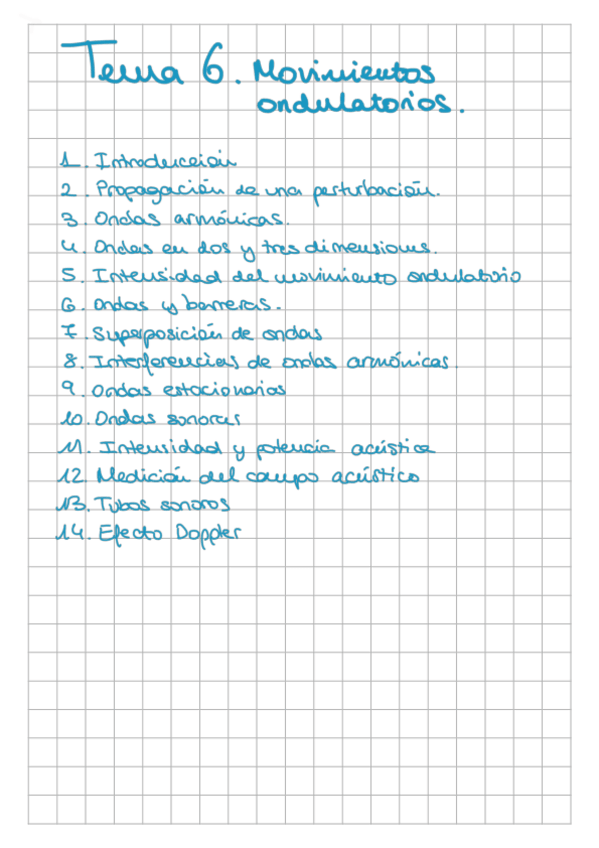 Tema 6. Movimientos
ondulatorios.
1. Introducción
2. Propagación de una perturbación.
3. Ondas armónicas.
4. Ondas en dos y tres dimensiones.
5. Intensidad del movimiento ondulatorio
6. Ondas y barreras.
7. Superposición de ondas
8. Interferencias de ondas armónicas.
9. Ondas estacionarias
10. Ondas sonoras
11. Intensidad y potencia acústica
12. Medición del campo acústico
13. Tubos sonoros
14. Efecto Doppler